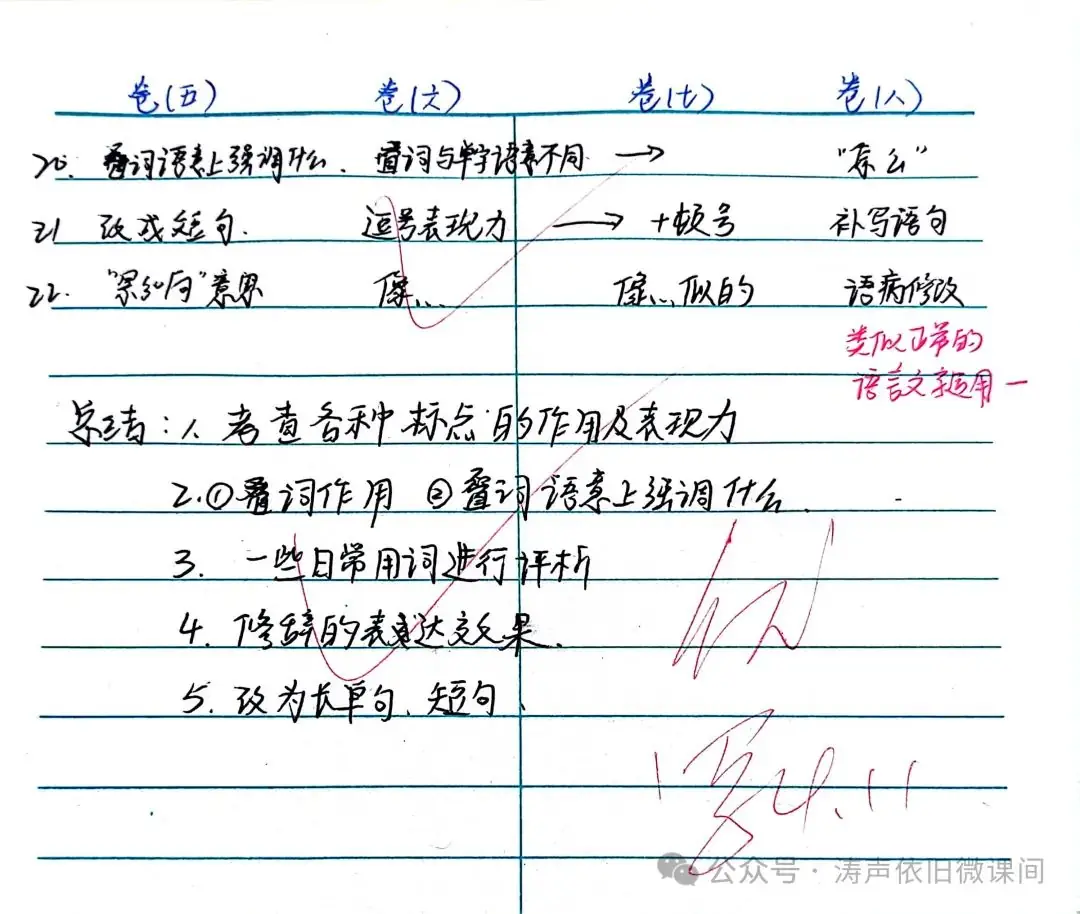 卷(五) 卷(六) 卷(七) 卷(八)
20. 叠词语意上强调什么. 叠词与单字语意不同 → "怎么"
21 改成短句. 逗号表现力 → +顿号 补写语句
22. 意思 像… 像…似的 语病修改
类似正常的
语言文字运用一
总结: 1. 考查各种标点的作用及表现力
2. ①叠词作用 ②叠词语意上强调什么.
3. 一些日常用词进行评析
4. 修辞的表达效果.
5. 改为长单句、短句.
4.11
公众号·涛声依旧微课间